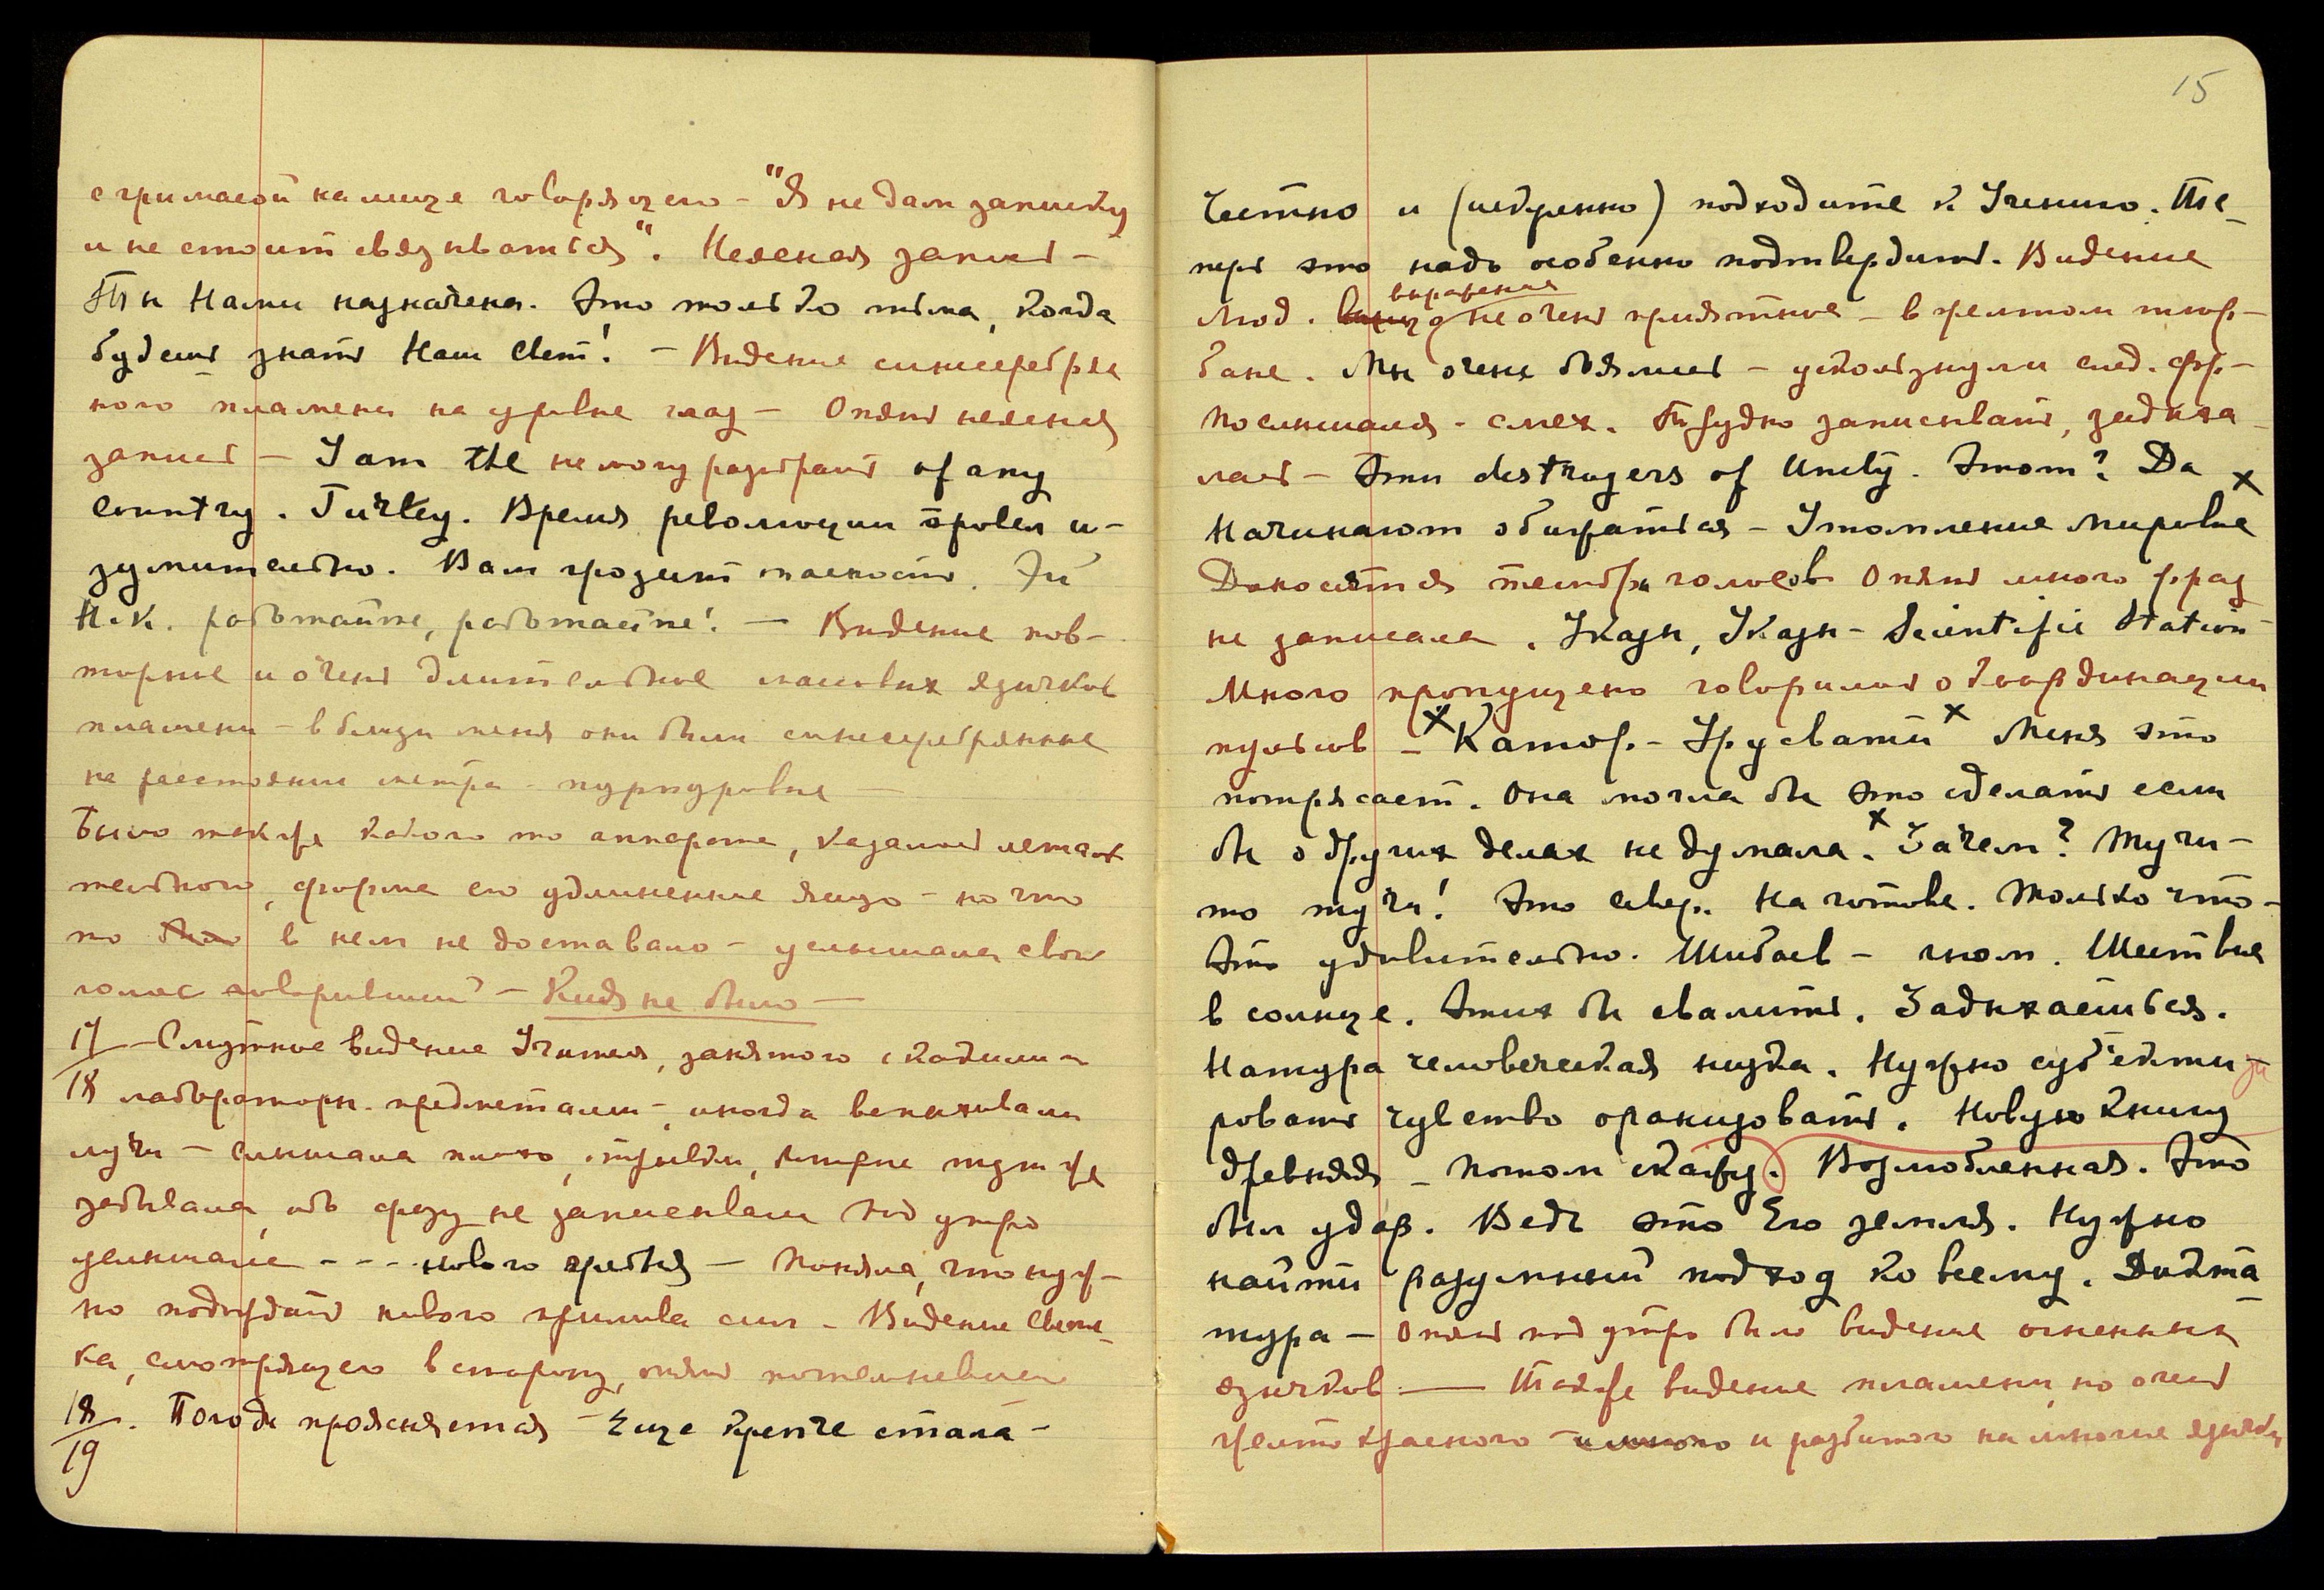 с гримасой на лице говорящего – "Я не дам записку
и не стоит связываться". Неясная запись –
Ты Нами назначена. Это только тьма, когда
будешь знать Наш Свет! – Видение синесеребрян
ного пламени на уровне глаз – Опять неясная
запись – I am the не могу разобрать of any
country. Turkey. Время революции провел и-
зумительно. Вам грозит опасность. Эй
Н.К. работайте, работайте! – Видение пов-
торное и очень длительное массовых язычков
пламени – вблизи меня они были синесеребрянные
на расстоянии метра – пурпуровые –
Было также какого то аппарата, казалось летат
тельного, форма его удлиненное яйцо – но что
то в нем не доставало – услышала свой
голос говоривший – Киля не было –
17 – Смутное видение Учителя, занятого какими
18 лабораторн. предметами –, иногда вспыхивали
лучи – слышала много, отрывки, которые тут же
забывала, ибо фразу не записывала под утро
услышала - - - нового гребня – Поняла, что нуж-
но подождать нового прилива сил – Видение Свети-
ка, смотрящего в сторону, опять потемневшее
18. Погода проясняется – Еще крепче стала –
19
15
Честно и (искренно) подходите к Учению. Те-
перь это надо особенно подтвердить. Видение
выражение
Мод. не очень приятное – в желтом тюр-
бане. Мы очень боялись – ускользнули след. фр. –
Послышался – смех. Трудно записывать, задыха
лась – Эти destroyers of Unity. Этот? Да x
Начинают обижаться – Утомление мировое
Доносятся тембры голосов Опять много фраз
не записала. Указы, Указы – Scientific Station –
Много пропущено говорилось о координации
пульсов – x Катор. – Урусвати x Меня это
потрясает. Она могла бы это сделать если
x
бы о других делах не думала. Зачем? Тучи –
то тучи! Это север. На готове. Только что –
Это удивительно. Шибаев – гном. Шествие
в солнце. Этих бы свалить. Задыхаетсься.
Натура человеческая низка. Нужно суб'ектизи
ровать чувство организовать. Новую книгу
древняя – потом скажу. Возлюбленная. Это
был удар. Ведь это Его земля. Нужно
найти разумный подход ко всему. Дикта
тура – Опять под утро было видение огненных
язычков –– Также видение пламени, но очень
желто красного – и разбитого на многие язычки